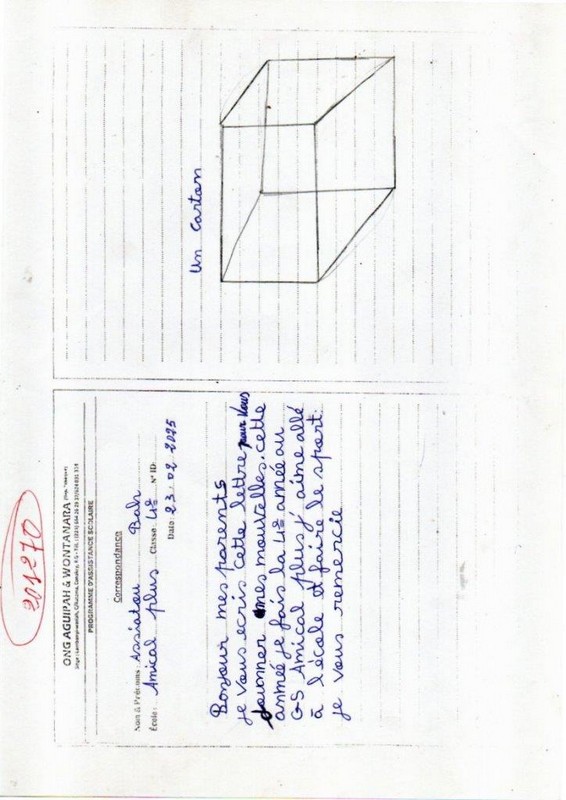 201270
ONG AGUIPAH & WONTANARA
PROGRAMME D'ASSISTANCE SCOLAIRE
Correspondance
Nom & Prénoms : Assiatou Bah
École : Amical plus Classe : 4è N° ID:
Date : 23 02 2025
Bonjour mes parents
je vous ecris cette lettre pour vous
donner mes mouvelles. cette
année je fais la 4è améé au
GS Amical plus j'aime allé
à l'école et faire le sport.
je vous remercie
un carton